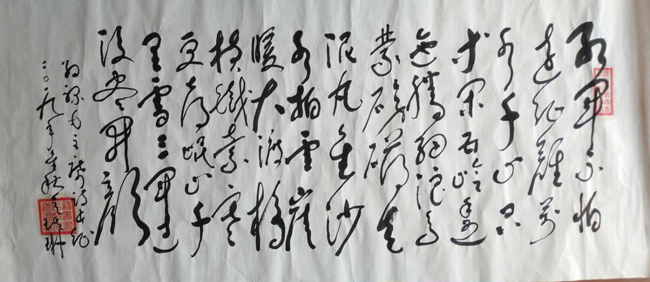 红军不怕
远征难万
水千山只
等闲五岭逶
迤腾细浪乌
蒙磅礴走
泥丸金沙
水拍云崖
暖大渡桥
横铁索寒
更喜岷山千
里雪三军过
后尽开颜
毛主席诗长征
二〇一九年